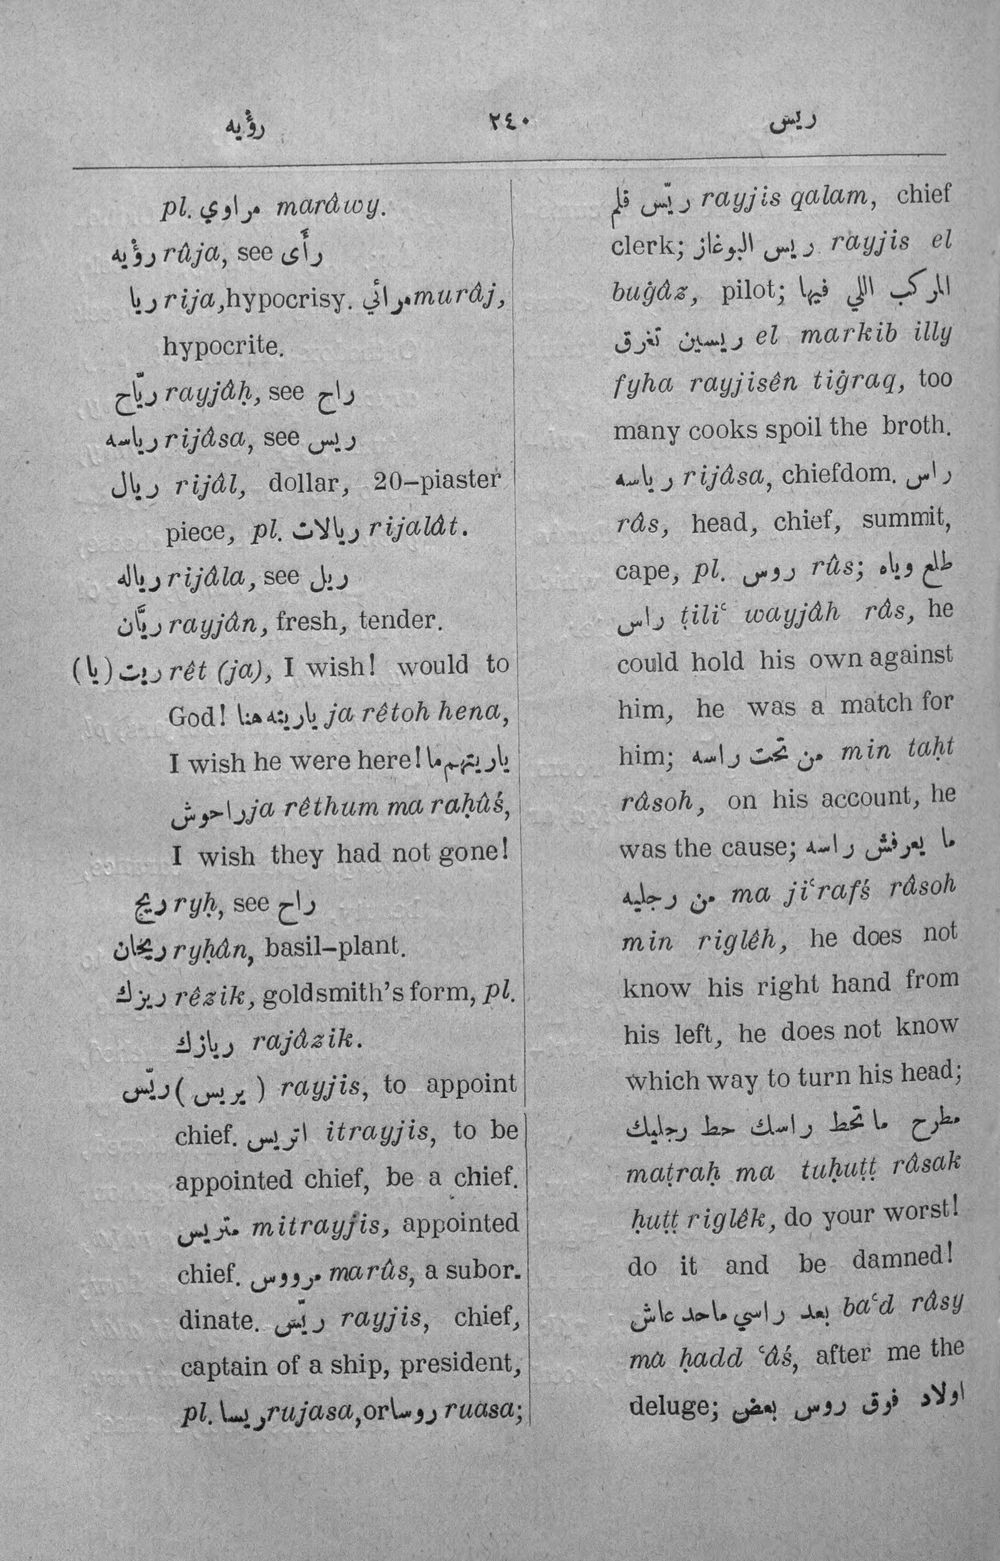 رؤيه ٢٤٠ ريس
pl. مراوي marâwy.
رؤيه rûja, see رأى
ريا rija, hypocrisy. مرائي murâj,
hypocrite.
ريّاح rayjâḥ, see راح
رياسه rijâsa, see ريس
ريال rijâl, dollar, 20–piaster
piece, pl. ريالات rijalât.
رياله rijâla, see ريل
ريَّان rayjân, fresh, tender.
ريت (يا) rêt (ja), I wish! would to
God! ياريته هنا ja rêtoh hena,
I wish he were here! ياريتهم ما
راحوش ja rêthum ma raḥûś,
I wish they had not gone!
ريح ryḥ, see راح
ريحان ryḥân, basil–plant.
ريزك rêzik, goldsmith's form, pl.
ريازك rajâzik.
ريّس (يريس) rayjis, to appoint
chief. اتريس itrayjis, to be
appointed chief, be a chief.
متريس mitrayjis, appointed
chief. مرووس marûs, a subor-
dinate. ريّس rayjis, chief,
captain of a ship, president,
pl. ريسا rujasa, or روسا ruasa;
ريّس قلم rayjis qalam, chief
clerk; ريس البوغاز rayjis el
buġâz, pilot; المركب اللي فيها
ريسين تغرق el markib illy
fyha rayjisên tiġraq, too
many cooks spoil the broth.
رياسه rijâsa, chiefdom. راس
râs, head, chief, summit,
cape, pl. روس rûs; طلع وياه
راس ṭiliʿ wayjâh râs, he
could hold his own against
him, he was a match for
him; من تحت راسه min taḥt
râsoh, on his account, he
was the cause; ما يعرفش راسه
من رجليه ma jiʿrafś râsoh
min riglêh, he does not
know his right hand from
his left, he does not know
which way to turn his head;
مطرح ما تحط راسك حط رجليك
maṭraḥ ma tuḥuṭṭ râsak
ḥuṭṭ riglêk, do your worst!
do it and be damned!
بعد راسي ماحد عاش baʿd râsy
ma ḥadd ʿâś, after me the
deluge; اولاد فوق روس بعض